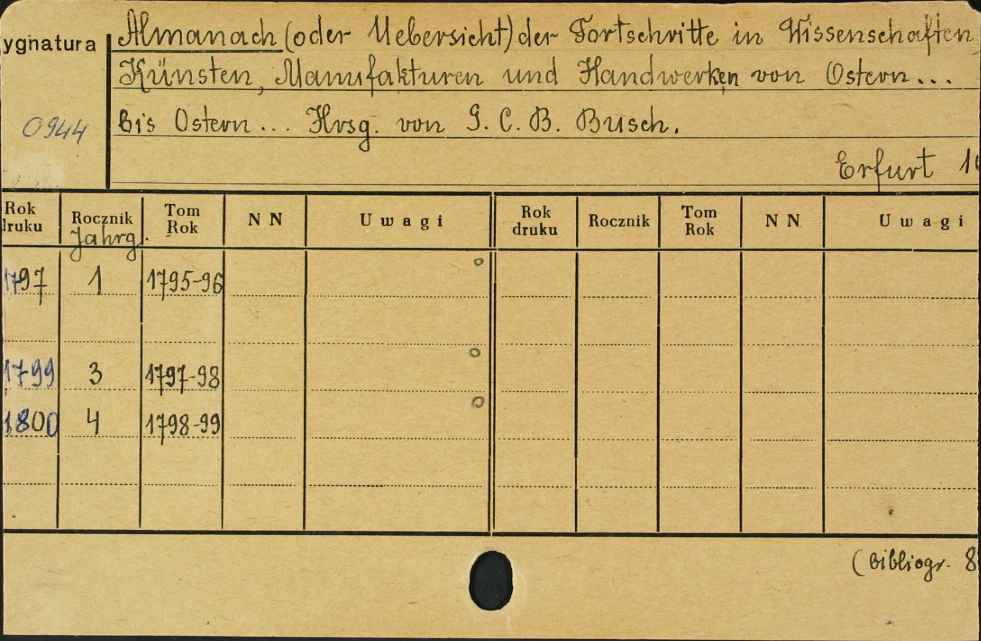 ygnatura
0944
Almanach (oder Uebersicht) der Fortschritte in Wissenschaften
Künsten, Manufakturen und Handwerken von Ostern...
bis Ostern... Hrsg. von G. C. B. Busch.
Erfurt
Rok druku Rocznik Tom Rok NN Uwagi Rok druku Rocznik Tom Rok NN Uwagi
Jahrg.
1797 1 1795-96
1799 3 1797-98
1800 4 1798-99
(Bibliogr. 8